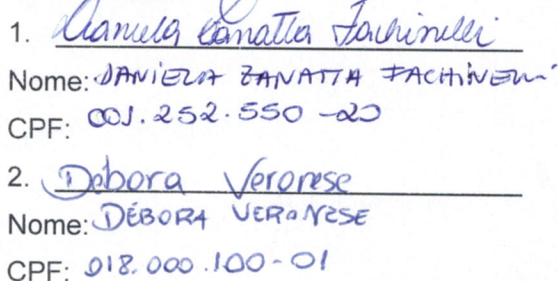 1. Daniela Zanatta Fachinelli
Nome: DANIELA ZANATTA FACHINELLI
CPF: 001.252.550-20
2. Débora Veronese
Nome: DÉBORA VERONESE
CPF: 018.000.100-01